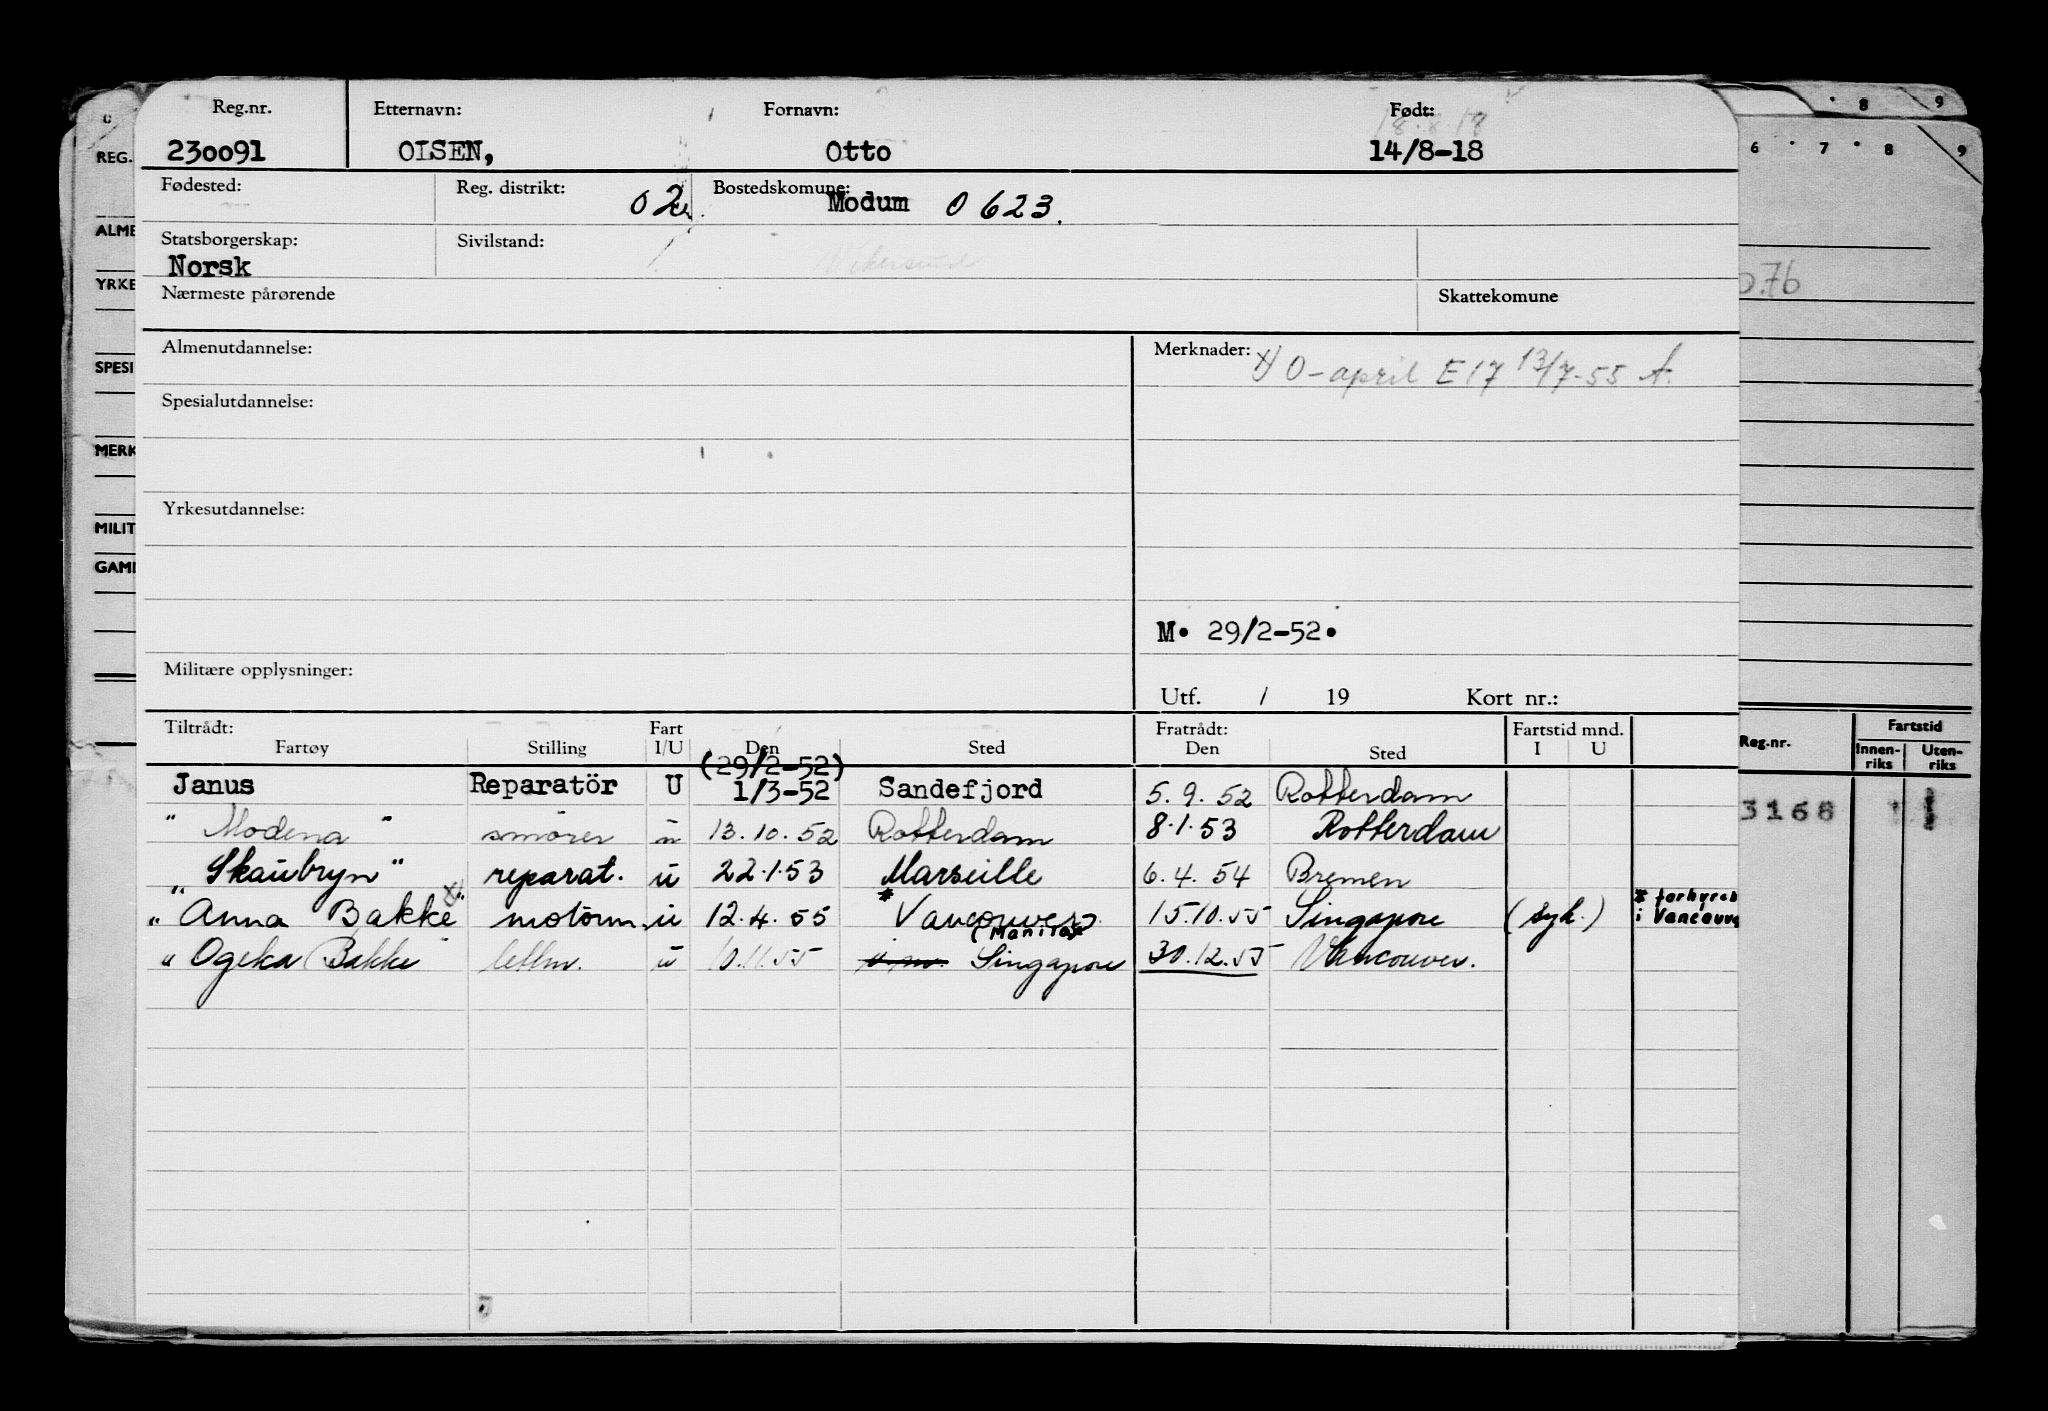 Reg.nr. Etternavn: Fornavn: Født:
23oo91 OlSEN, Otto 14/8-18
Fødested: Reg. distrikt: 02 Bostedskomune: Modum 0623.
Statsborgerskap: Sivilstand:
Norsk Vikersund
Nærmeste pårørende Skattekomune
Almenutdannelse: Merknader: x) O-april E17 13/7-55 A.
Spesialutdannelse:
Yrkesutdannelse:
M. 29/2-52.
Militære opplysninger:
Utf. / 19 Kort nr.:
Tiltrådt: Fart Fratrådt: Fartstid mnd.
Fartøy Stilling I/U Den Sted Den Sted I U
(29/2-52)
Janus Reparatör U 1/3-52 Sandefjord 5.9.52 Rotterdam
" Modena " smører u 13.10.52 Rotterdam 8.1.53 Rotterdam
" Skaubryn " reparat. u 22.1.53 Marseille 6.4.54 Bremen
" Anna Bakke x) " motorm. u 12.4.55 * Vancouver 15.10.55 Singapore (syk.) * forhyres
(Manila) i Vancouve
" Ogeka (Bakke " lettm. u 10.11.55 Singapore 30.12.55 Vancouver.
REG.
ALME
YRKE
SPESI
MERK
MILIT
GAML
8 9
6 7 8 9
0.76
Reg.nr. Fartstid
Innen-riks Uten-riks
3168